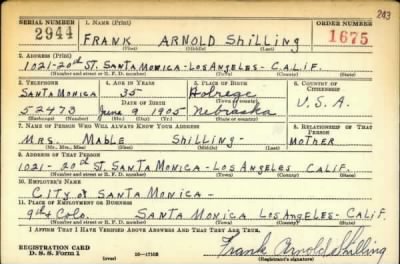 203
SERIAL NUMBER 1. NAME (Print) ORDER NUMBER
2944 FRANK ARNOLD Shilling 1675
(First) (Middle) (Last)
2. ADDRESS (Print)
1021-20th ST. SANTA MONICA-LOS ANGELES-CALIF.
(Number and street or R. F. D. number) (Town) (County) (State)
3. TELEPHONE 4. AGE IN YEARS 5. PLACE OF BIRTH 6. COUNTRY OF CITIZENSHIP
SANTA MONICA 35 Holrege
DATE OF BIRTH (Town or county) U.S.A.
52473 June 9 1905 Nebraska
(Exchange) (Number) (Mo.) (Day) (Yr.) (State or country)
7. NAME OF PERSON WHO WILL ALWAYS KNOW YOUR ADDRESS 8. RELATIONSHIP OF THAT PERSON
MRS. MABLE Shilling- MOTHER
(Mr., Mrs., Miss) (First) (Middle) (Last)
9. ADDRESS OF THAT PERSON
1021- 20th ST. SANTA MONICA-LOS ANGELES CALIF.
(Number and street or R. F. D. number) (Town) (County) (State)
10. EMPLOYER'S NAME
CITY of SANTA MONICA-
11. PLACE OF EMPLOYMENT OR BUSINESS
9th & Colo. SANTA MONICA LOS ANGELES-CALIF.
(Number and street or R. F. D. number) (Town) (County) (State)
I AFFIRM THAT I HAVE VERIFIED ABOVE ANSWERS AND THAT THEY ARE TRUE.
REGISTRATION CARD
D. S. S. Form 1 (over) 16-17105 Frank Arnold Shilling
(Registrant's signature)